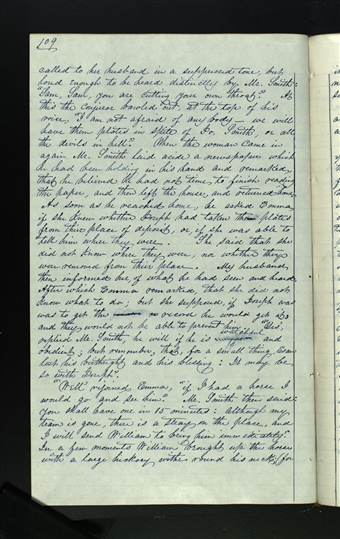 109
called to her husband in a suppressed tone, but
loud enough to be heard distinctly by Mr. Smith:
"Sam, Sam, you are cutting your own throat." At
this the conjuror bawled out at the top of his
voice, "I am not afraid of any body— we will
have them plates in spite of Jo. Smith, or all
the devils in hell." When the woman came in
again Mr. Smith laid aside a newspaper which
he had been holding in his hand and remarked,
that he believed he had not time to finish reading
the paper, and then left the house, and returned home
As soon as he reached home, he asked Emma
if she knew whether Joseph had taken the plates
from their place of deposit, or if she was able to
tell him where they were. She said that she
did not know where they were, nor whether they
were removed from their place. My husband,
then informed her of what he had seen and heard
After which Emma remarked, that she did not
know what to do; but she supposed, if Joseph was
to get the record he would get it
and they would not be able to prevent him. "Yes,"
replied Mr. Smith, "he will if he is watchful and
obedient; but remember, that, for a small thing, Esau
lost his birthright and his blessing: It may be
so with Joseph."
"Well" rejoined Emma, "if I had a horse I
would go and see him." Mr. Smith then said:
you shall have one in 15 minutes: although my
team is gone, there is a stray on the place, and
I will send William to bring him immediately."
In a few moments William brought up the horse
with a large hickory withe round his neck; (for